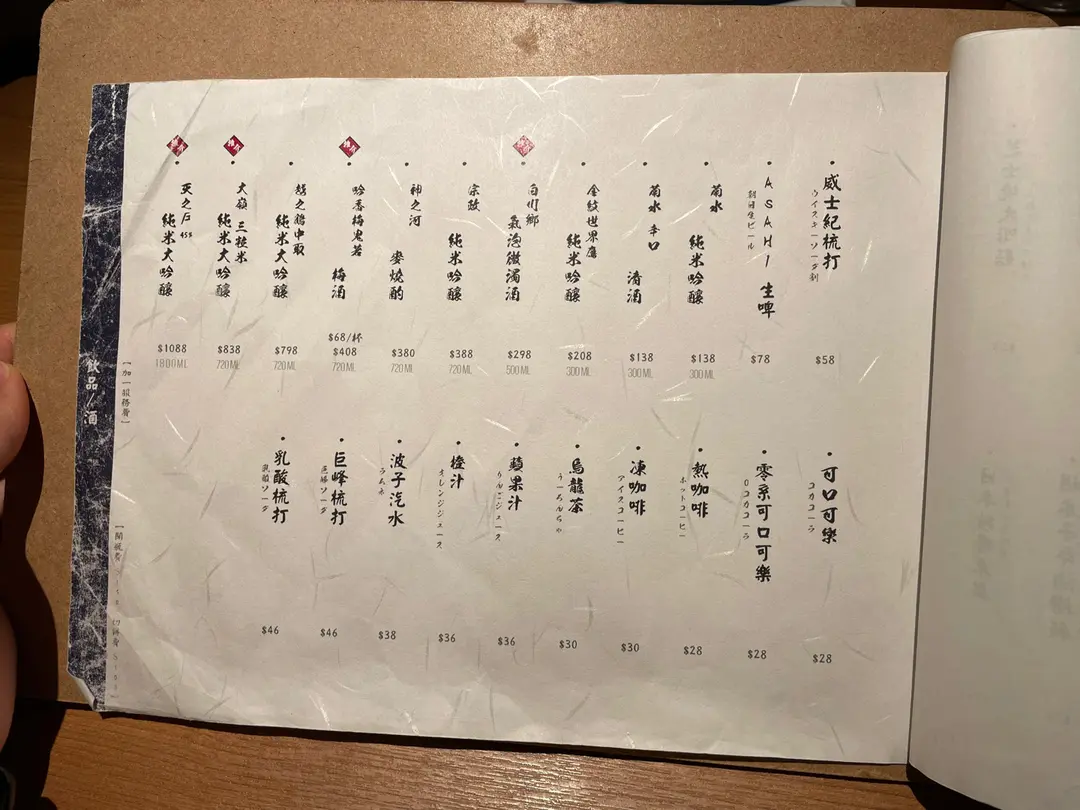 威士紀梳打
ウイスキーソーダ割
$58
ASAHI 生啤
朝日生ビール
$78
菊水
純米吟釀
$138
300ML
菊水 辛口
清酒
$138
300ML
金紋世界鷹
純米吟釀
$208
300ML
白川鄉
氣泡微濁酒
$298
500ML
宗政
純米吟釀
$388
720ML
神之河
麥燒酌
$380
720ML
吟香梅鬼若
梅酒
$68/杯
$408
720ML
純米大吟釀
$798
720ML
大嶺 三粒米
純米大吟釀
$838
720ML
純米大吟釀
$1088
1800ML
可口可樂
コカコーラ
$28
零系可口可樂
0コカコーラ
$28
熱咖啡
ホットコーヒー
$28
凍咖啡
アイスコーヒー
$30
烏龍茶
うーろんちゃ
$30
蘋果汁
りんごジュース
$36
橙汁
オレンジジュース
$36
波子汽水
らむね
$38
巨峰梳打
巨峰ソーダ
$46
乳酸梳打
乳酸ソーダ
$46
飲品/酒
[加一服務費]